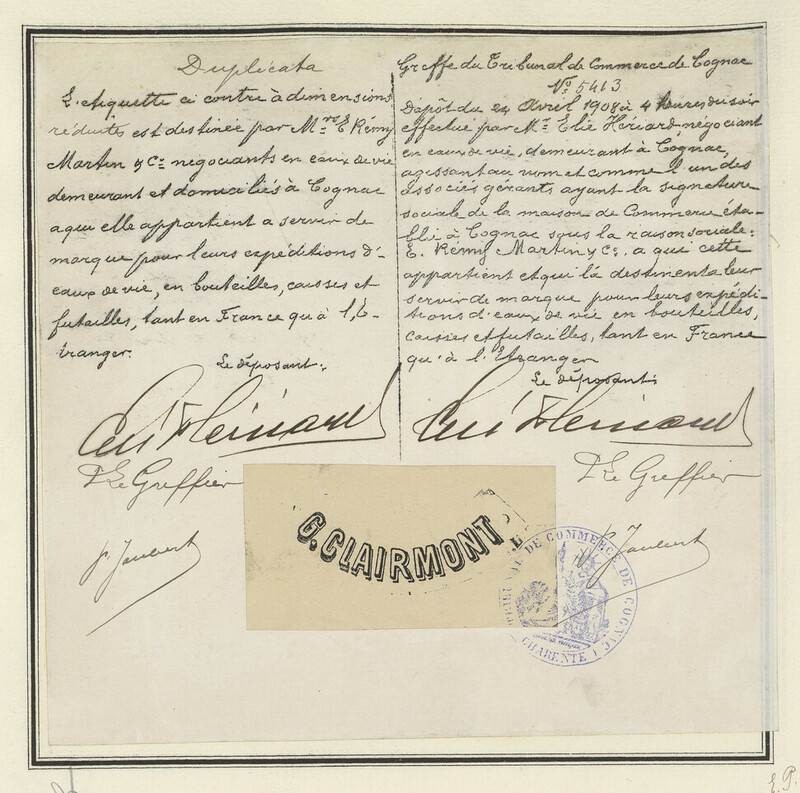 Duplicata
L'étiquette ci contre à dimensions
réduites est destinée par Mrs E. Rémy
Martin & Co négociants en eaux de vie
demeurant et domiciliés à Cognac
a qui elle appartient a servir de
marque pour leurs expéditions d'-
eaux de vie, en bouteilles, caisses et
futailles, tant en France qu'à l'E-
tranger.
Le déposant:
Le Greffier
Greffe du Tribunal de Commerce de Cognac
No 5413
Dépôt du 24 Avril 1908 à 4 heures du soir
effectué par Mr Elie Hériard, négociant
en eaux de vie, demeurant à Cognac,
agissant au nom et comme l'un des
associés gérants ayant la signature
sociale de la maison de Commerce éta-
blie à Cognac sous la raison sociale:
E. Rémy Martin & Co. a qui cette
appartient et qui la destinent a leur
servir de marque pour leurs expédi-
tions d'eaux de vie en bouteilles,
caisses et futailles, tant en France
qu'à l'Etranger
Le déposant:
Le Greffier
G. CLAIRMONT
TRIBUNAL DE COMMERCE DE COGNAC
CHARENTE
E.P.